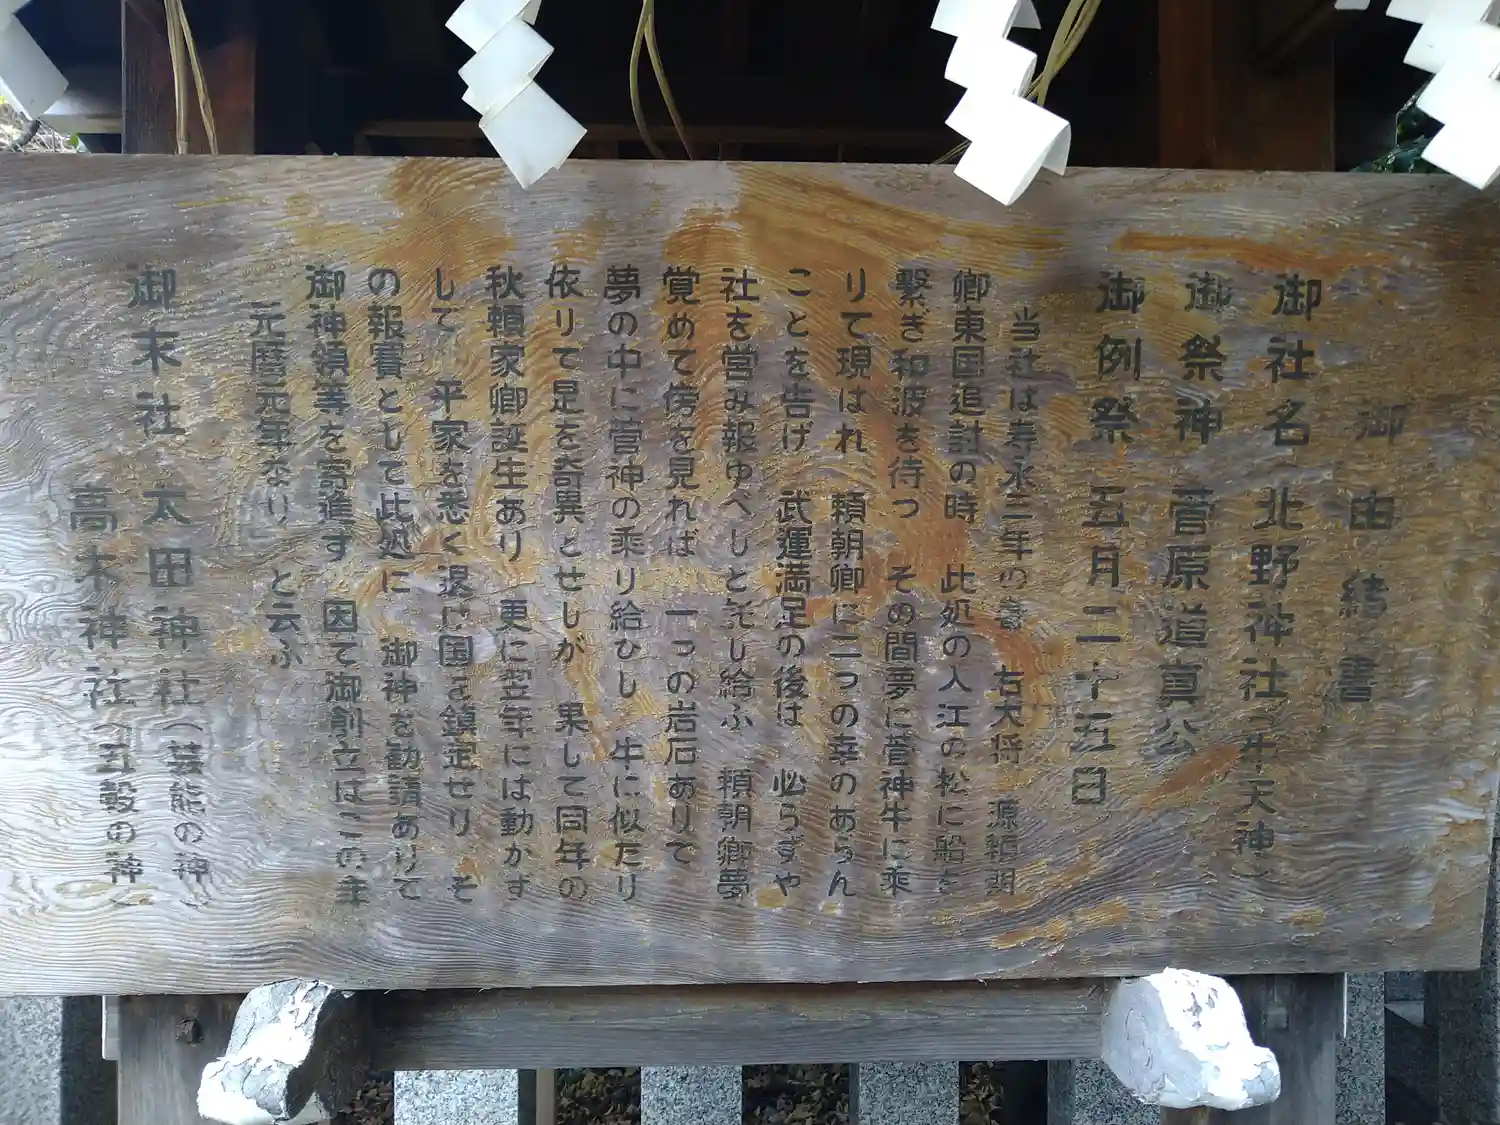 御由緒書
御社名 北野神社(牛天神)
御祭神 菅原道真公
御例祭 五月二十五日
当社は寿永三年の春 右大将 源頼朝
卿東国追討の時 此処の入江の松に船を
繫ぎ和波を待つ その間夢に菅神牛に乘
りて現はれ 頼朝卿に二つの幸のあらん
ことを告げ 武運満足の後は 必らずや
社を営み報ゆべしと託し給ふ 頼朝卿夢
覚めて傍を見れば 一つの岩石ありて
夢の中に菅神の乘り給ひし 牛に似たり
依りて是を奇異とせしが 果して同年の
秋頼家卿誕生あり 更に翌年には動かず
して 平家を悉く退け国を鎮定せり そ
の報賽として此処に 御神を勧請ありて
御神領等を寄進す 因て御創立はこの年
「元暦元年なり」と云ふ
御末社 太田神社(芸能の神)
高木神社(五穀の神)